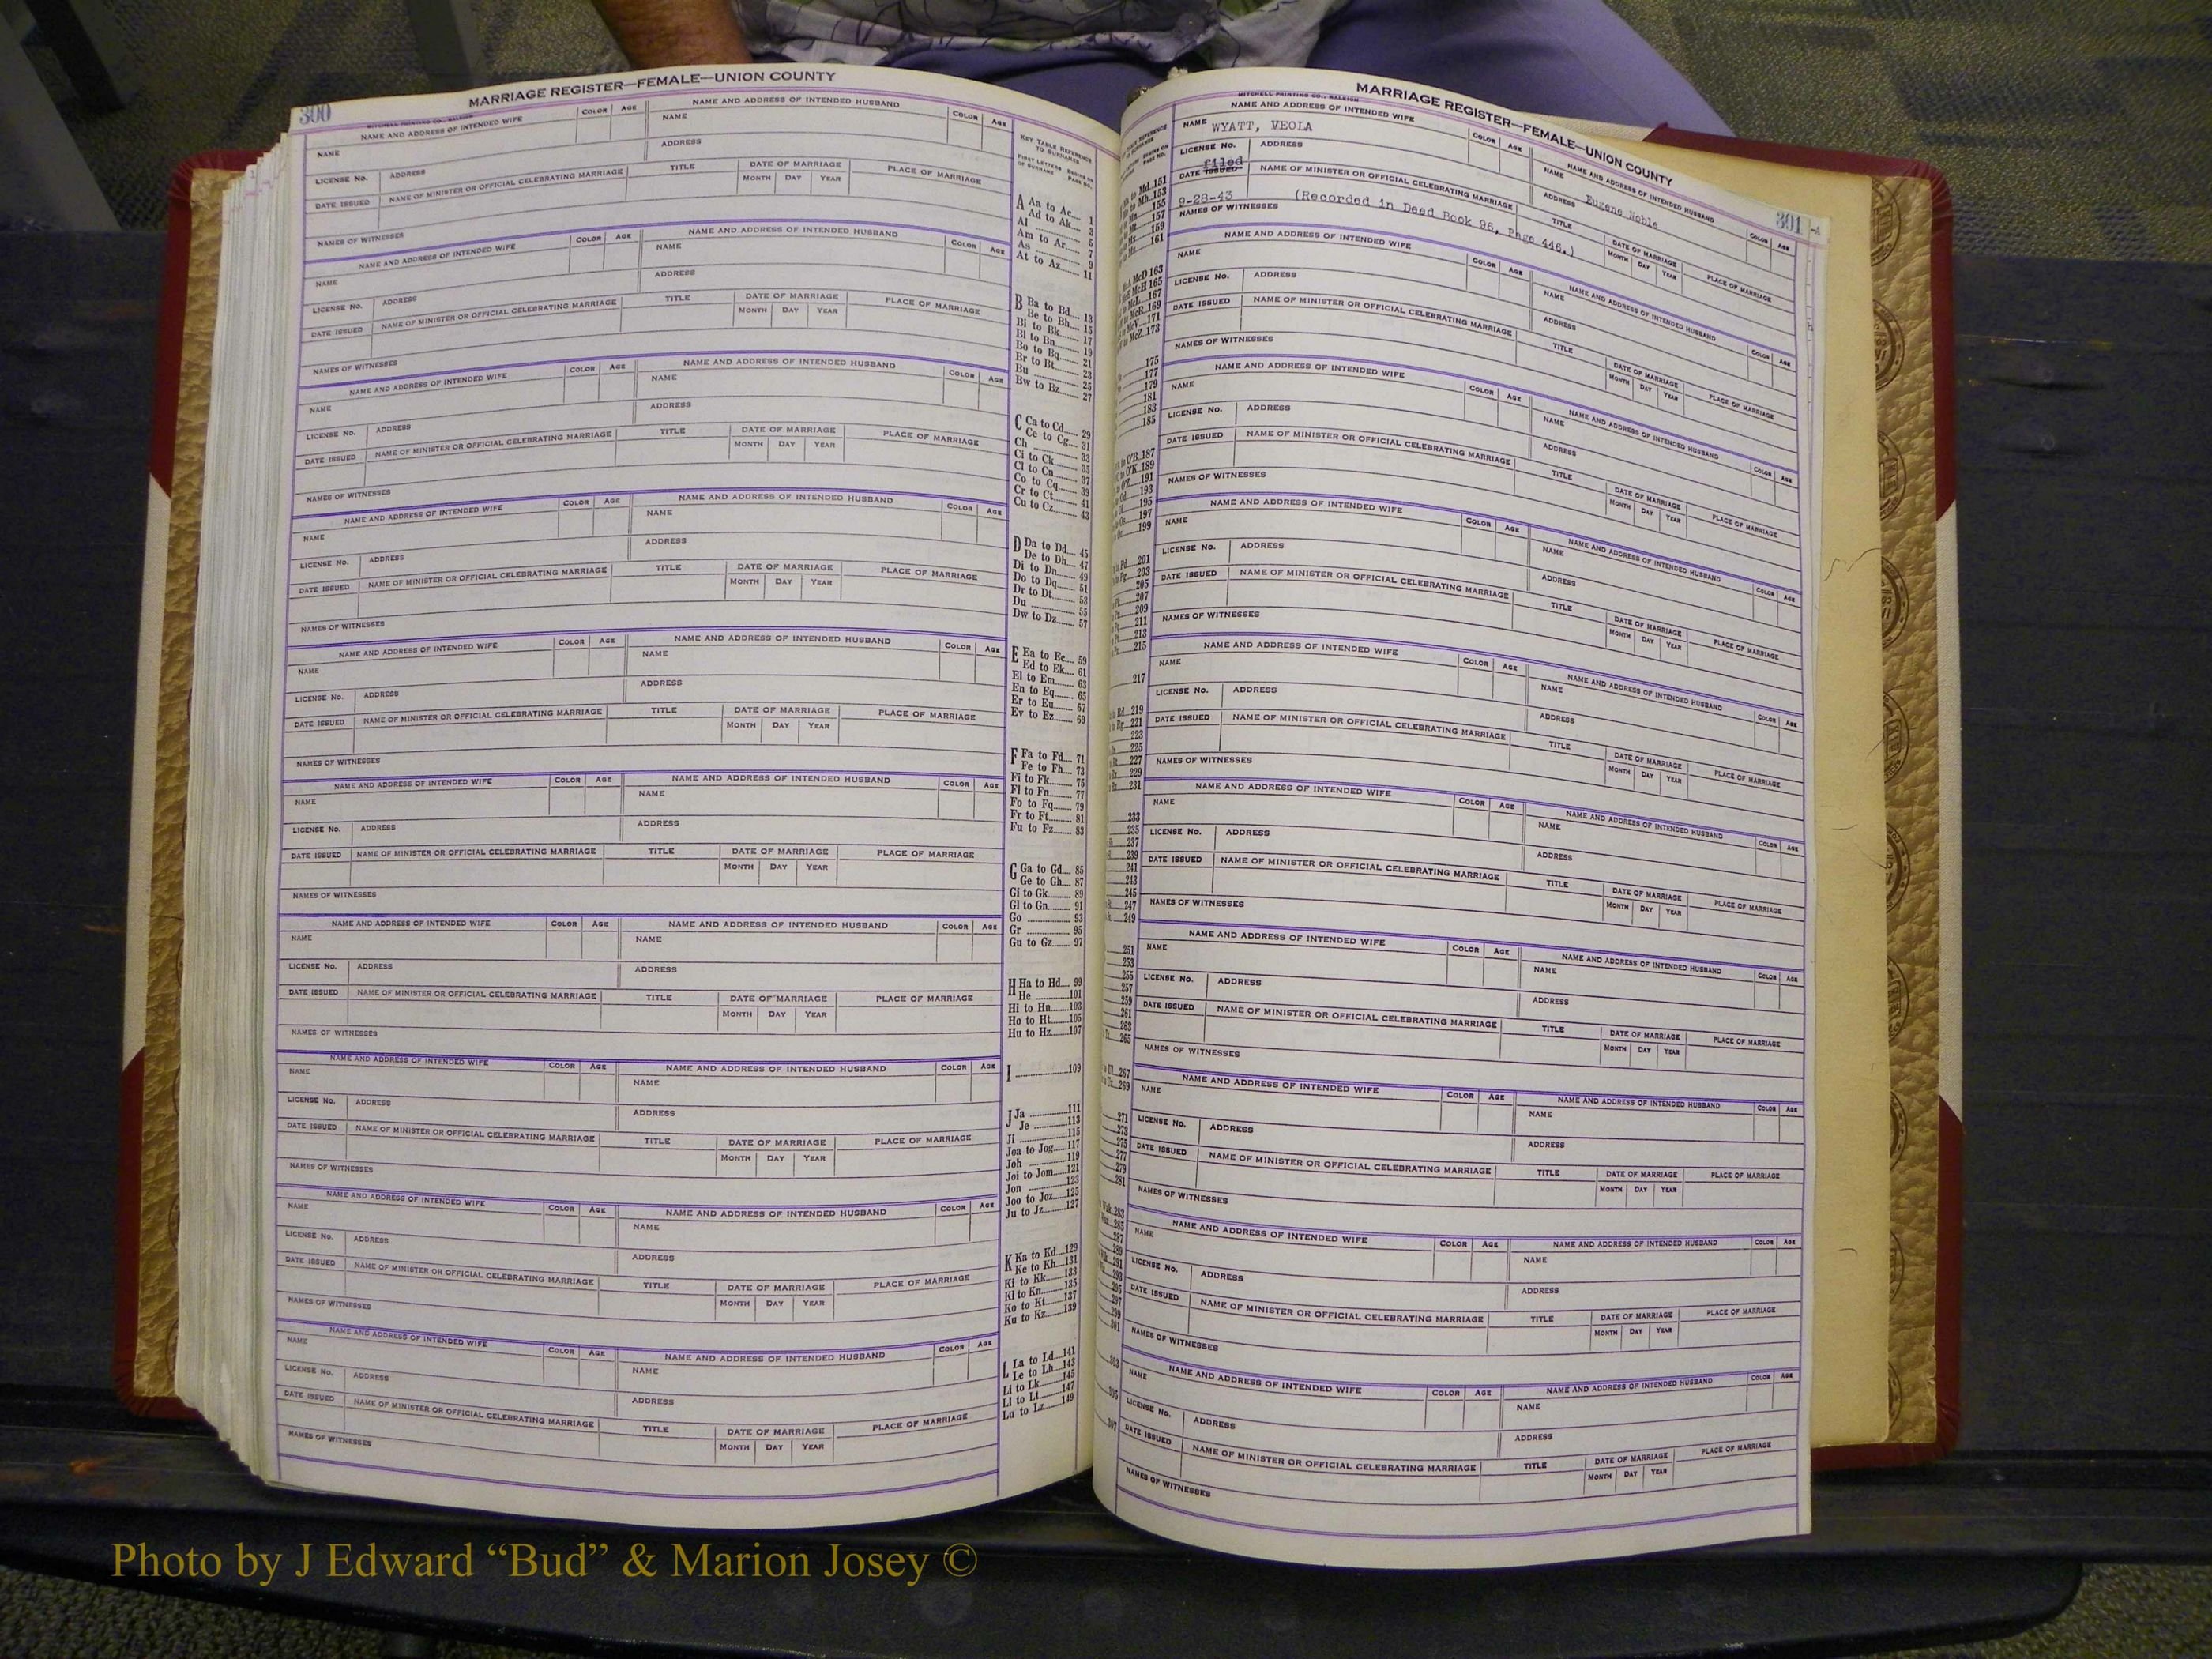 300
MARRIAGE REGISTER—FEMALE—UNION COUNTY
MITCHELL PRINTING CO., RALEIGH
NAME AND ADDRESS OF INTENDED WIFE COLOR AGE NAME AND ADDRESS OF INTENDED HUSBAND COLOR AGE
NAME NAME
LICENSE No. ADDRESS ADDRESS
DATE ISSUED NAME OF MINISTER OR OFFICIAL CELEBRATING MARRIAGE TITLE DATE OF MARRIAGE PLACE OF MARRIAGE
MONTH DAY YEAR
NAMES OF WITNESSES
NAME AND ADDRESS OF INTENDED WIFE COLOR AGE NAME AND ADDRESS OF INTENDED HUSBAND COLOR AGE
NAME NAME
LICENSE No. ADDRESS ADDRESS
DATE ISSUED NAME OF MINISTER OR OFFICIAL CELEBRATING MARRIAGE TITLE DATE OF MARRIAGE PLACE OF MARRIAGE
MONTH DAY YEAR
NAMES OF WITNESSES
NAME AND ADDRESS OF INTENDED WIFE COLOR AGE NAME AND ADDRESS OF INTENDED HUSBAND COLOR AGE
NAME NAME
LICENSE No. ADDRESS ADDRESS
DATE ISSUED NAME OF MINISTER OR OFFICIAL CELEBRATING MARRIAGE TITLE DATE OF MARRIAGE PLACE OF MARRIAGE
MONTH DAY YEAR
NAMES OF WITNESSES
NAME AND ADDRESS OF INTENDED WIFE COLOR AGE NAME AND ADDRESS OF INTENDED HUSBAND COLOR AGE
NAME NAME
LICENSE No. ADDRESS ADDRESS
DATE ISSUED NAME OF MINISTER OR OFFICIAL CELEBRATING MARRIAGE TITLE DATE OF MARRIAGE PLACE OF MARRIAGE
MONTH DAY YEAR
NAMES OF WITNESSES
NAME AND ADDRESS OF INTENDED WIFE COLOR AGE NAME AND ADDRESS OF INTENDED HUSBAND COLOR AGE
NAME NAME
LICENSE No. ADDRESS ADDRESS
DATE ISSUED NAME OF MINISTER OR OFFICIAL CELEBRATING MARRIAGE TITLE DATE OF MARRIAGE PLACE OF MARRIAGE
MONTH DAY YEAR
NAMES OF WITNESSES
NAME AND ADDRESS OF INTENDED WIFE COLOR AGE NAME AND ADDRESS OF INTENDED HUSBAND COLOR AGE
NAME NAME
LICENSE No. ADDRESS ADDRESS
DATE ISSUED NAME OF MINISTER OR OFFICIAL CELEBRATING MARRIAGE TITLE DATE OF MARRIAGE PLACE OF MARRIAGE
MONTH DAY YEAR
NAMES OF WITNESSES
NAME AND ADDRESS OF INTENDED WIFE COLOR AGE NAME AND ADDRESS OF INTENDED HUSBAND COLOR AGE
NAME NAME
LICENSE No. ADDRESS ADDRESS
DATE ISSUED NAME OF MINISTER OR OFFICIAL CELEBRATING MARRIAGE TITLE DATE OF MARRIAGE PLACE OF MARRIAGE
MONTH DAY YEAR
NAMES OF WITNESSES
NAME AND ADDRESS OF INTENDED WIFE COLOR AGE NAME AND ADDRESS OF INTENDED HUSBAND COLOR AGE
NAME NAME
LICENSE No. ADDRESS ADDRESS
DATE ISSUED NAME OF MINISTER OR OFFICIAL CELEBRATING MARRIAGE TITLE DATE OF MARRIAGE PLACE OF MARRIAGE
MONTH DAY YEAR
NAMES OF WITNESSES
NAME AND ADDRESS OF INTENDED WIFE COLOR AGE NAME AND ADDRESS OF INTENDED HUSBAND COLOR AGE
NAME NAME
LICENSE No. ADDRESS ADDRESS
DATE ISSUED NAME OF MINISTER OR OFFICIAL CELEBRATING MARRIAGE TITLE DATE OF MARRIAGE PLACE OF MARRIAGE
MONTH DAY YEAR
NAMES OF WITNESSES
NAME AND ADDRESS OF INTENDED WIFE COLOR AGE NAME AND ADDRESS OF INTENDED HUSBAND COLOR AGE
NAME NAME
LICENSE No. ADDRESS ADDRESS
DATE ISSUED NAME OF MINISTER OR OFFICIAL CELEBRATING MARRIAGE TITLE DATE OF MARRIAGE PLACE OF MARRIAGE
MONTH DAY YEAR
NAMES OF WITNESSES
KEY TABLE REFERENCE
TO SURNAMES
FIRST LETTERS OF SURNAME BEGINS ON PAGE NO.
A Aa to Ac 1
Ad to Ak 3
Al 5
Am to Ar 7
As 9
At to Az 11
B Ba to Bd 13
Be to Bh 15
Bi to Bk 17
Bl to Bn 19
Bo to Bq 21
Br to Bt 23
Bu 25
Bw to Bz 27
C Ca to Cd 29
Ce to Cg 31
Ch 33
Ci to Ck 35
Cl to Cn 37
Co to Cq 39
Cr to Ct 41
Cu to Cz 43
D Da to Dd 45
De to Dh 47
Di to Dn 49
Do to Dq 51
Dr to Dt 53
Du 55
Dw to Dz 57
E Ea to Ec 59
Ed to Ek 61
El to Em 63
En to Eq 65
Er to Eu 67
Ev to Ez 69
F Fa to Fd 71
Fe to Fh 73
Fi to Fk 75
Fl to Fn 77
Fo to Fq 79
Fr to Ft 81
Fu to Fz 83
G Ga to Gd 85
Ge to Gh 87
Gi to Gk 89
Gl to Gn 91
Go 93
Gr 95
Gu to Gz 97
H Ha to Hd 99
He 101
Hi to Hn 103
Ho to Ht 105
Hu to Hz 107
I 109
J Ja 111
Je 113
Ji 115
Joa to Jog 117
Joh 119
Joi to Jom 121
Jon 123
Joo to Joz 125
Ju to Jz 127
K Ka to Kd 129
Ke to Kh 131
Ki to Kk 133
Kl to Kn 135
Ko to Kt 137
Ku to Kz 139
L La to Ld 141
Le to Lh 143
Li to Lk 145
Ll to Lt 147
Lu to Lz 149
MARRIAGE REGISTER—FEMALE—UNION COUNTY
301
MITCHELL PRINTING CO., RALEIGH
NAME AND ADDRESS OF INTENDED WIFE COLOR AGE NAME AND ADDRESS OF INTENDED HUSBAND COLOR AGE
NAME WYATT, VEOLA NAME Eugene Noble
LICENSE No. ADDRESS ADDRESS
filed
DATE ISSUED NAME OF MINISTER OR OFFICIAL CELEBRATING MARRIAGE TITLE DATE OF MARRIAGE PLACE OF MARRIAGE
MONTH DAY YEAR
9-28-43 (Recorded in Deed Book 96, Page 446.)
NAMES OF WITNESSES
NAME AND ADDRESS OF INTENDED WIFE COLOR AGE NAME AND ADDRESS OF INTENDED HUSBAND COLOR AGE
NAME NAME
LICENSE No. ADDRESS ADDRESS
DATE ISSUED NAME OF MINISTER OR OFFICIAL CELEBRATING MARRIAGE TITLE DATE OF MARRIAGE PLACE OF MARRIAGE
MONTH DAY YEAR
NAMES OF WITNESSES
NAME AND ADDRESS OF INTENDED WIFE COLOR AGE NAME AND ADDRESS OF INTENDED HUSBAND COLOR AGE
NAME NAME
LICENSE No. ADDRESS ADDRESS
DATE ISSUED NAME OF MINISTER OR OFFICIAL CELEBRATING MARRIAGE TITLE DATE OF MARRIAGE PLACE OF MARRIAGE
MONTH DAY YEAR
NAMES OF WITNESSES
NAME AND ADDRESS OF INTENDED WIFE COLOR AGE NAME AND ADDRESS OF INTENDED HUSBAND COLOR AGE
NAME NAME
LICENSE No. ADDRESS ADDRESS
DATE ISSUED NAME OF MINISTER OR OFFICIAL CELEBRATING MARRIAGE TITLE DATE OF MARRIAGE PLACE OF MARRIAGE
MONTH DAY YEAR
NAMES OF WITNESSES
NAME AND ADDRESS OF INTENDED WIFE COLOR AGE NAME AND ADDRESS OF INTENDED HUSBAND COLOR AGE
NAME NAME
LICENSE No. ADDRESS ADDRESS
DATE ISSUED NAME OF MINISTER OR OFFICIAL CELEBRATING MARRIAGE TITLE DATE OF MARRIAGE PLACE OF MARRIAGE
MONTH DAY YEAR
NAMES OF WITNESSES
NAME AND ADDRESS OF INTENDED WIFE COLOR AGE NAME AND ADDRESS OF INTENDED HUSBAND COLOR AGE
NAME NAME
LICENSE No. ADDRESS ADDRESS
DATE ISSUED NAME OF MINISTER OR OFFICIAL CELEBRATING MARRIAGE TITLE DATE OF MARRIAGE PLACE OF MARRIAGE
MONTH DAY YEAR
NAMES OF WITNESSES
NAME AND ADDRESS OF INTENDED WIFE COLOR AGE NAME AND ADDRESS OF INTENDED HUSBAND COLOR AGE
NAME NAME
LICENSE No. ADDRESS ADDRESS
DATE ISSUED NAME OF MINISTER OR OFFICIAL CELEBRATING MARRIAGE TITLE DATE OF MARRIAGE PLACE OF MARRIAGE
MONTH DAY YEAR
NAMES OF WITNESSES
NAME AND ADDRESS OF INTENDED WIFE COLOR AGE NAME AND ADDRESS OF INTENDED HUSBAND COLOR AGE
NAME NAME
LICENSE No. ADDRESS ADDRESS
DATE ISSUED NAME OF MINISTER OR OFFICIAL CELEBRATING MARRIAGE TITLE DATE OF MARRIAGE PLACE OF MARRIAGE
MONTH DAY YEAR
NAMES OF WITNESSES
NAME AND ADDRESS OF INTENDED WIFE COLOR AGE NAME AND ADDRESS OF INTENDED HUSBAND COLOR AGE
NAME NAME
LICENSE No. ADDRESS ADDRESS
DATE ISSUED NAME OF MINISTER OR OFFICIAL CELEBRATING MARRIAGE TITLE DATE OF MARRIAGE PLACE OF MARRIAGE
MONTH DAY YEAR
NAMES OF WITNESSES
NAME AND ADDRESS OF INTENDED WIFE COLOR AGE NAME AND ADDRESS OF INTENDED HUSBAND COLOR AGE
NAME NAME
LICENSE No. ADDRESS ADDRESS
DATE ISSUED NAME OF MINISTER OR OFFICIAL CELEBRATING MARRIAGE TITLE DATE OF MARRIAGE PLACE OF MARRIAGE
MONTH DAY YEAR
NAMES OF WITNESSES
Photo by J Edward “Bud” & Marion Josey ©